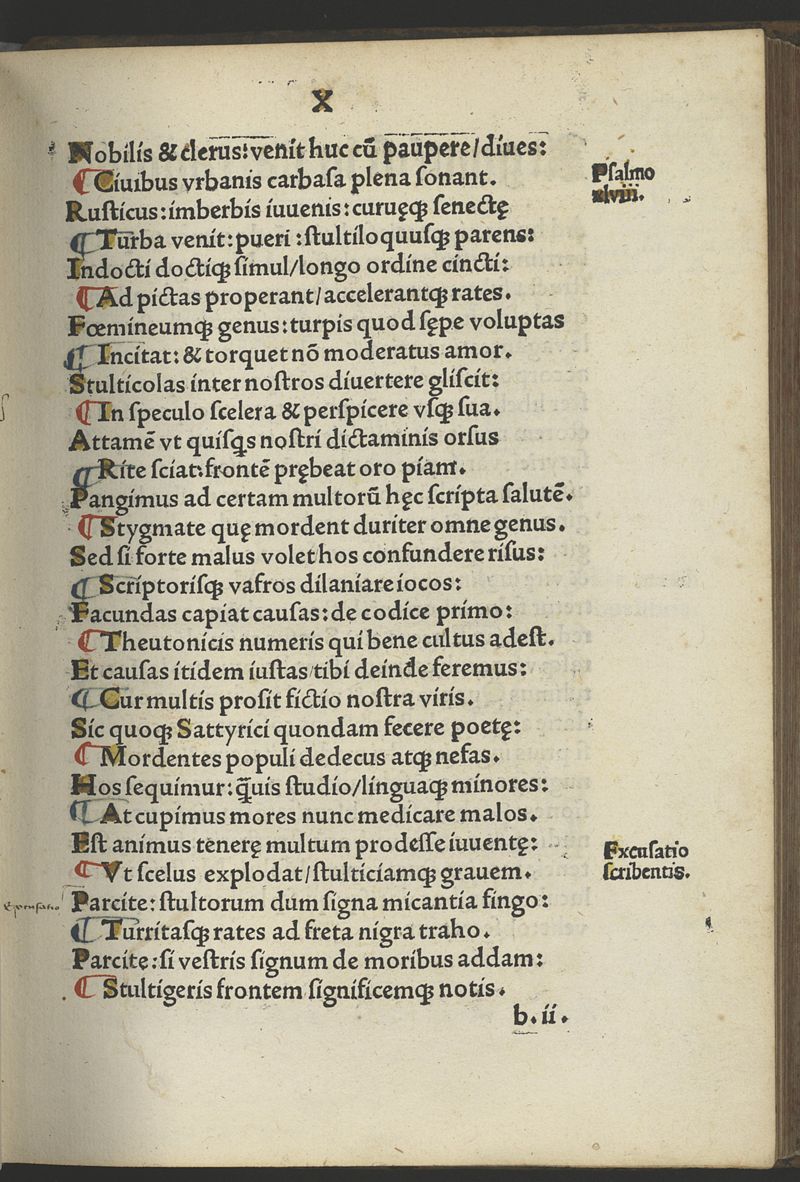 X
Nobilis & clerus: venit huc cū paupere/diues:
¶ Ciuibus vrbanis carbasa plena sonant.
Psalmo
xlviii.
Rusticus: imberbis iuuenis: curuęqꝫ senectę
¶ Turba venit: pueri: stultiloquusqꝫ parens:
Indocti doctiqꝫ simul/longo ordine cincti:
¶ Ad pictas properant/accelerantqꝫ rates.
Fœmineumqꝫ genus: turpis quod sępe voluptas
¶ Incitat: & torquet nō moderatus amor.
Stulticolas inter nostros diuertere gliscit:
¶ In speculo scelera & perspicere vsqꝫ sua.
Attamē vt quisqs nostri dictaminis orsus
¶ Rite sciat: frontē prębeat oro piam.
Pangimus ad certam multorū hęc scripta salutē.
¶ Stygmate quę mordent duriter omne genus.
Sed si forte malus volet hos confundere risus:
¶ Scriptorisqꝫ vafros dilaniare iocos:
Facundas capiat causas: de codice primo:
¶ Theutonicis numeris qui bene cultus adest.
Et causas itidem iustas tibi deinde feremus:
¶ Cur multis prosit fictio nostra viris.
Sic quoqꝫ Sattyrici quondam fecere poetę:
¶ Mordentes populi dedecus atqꝫ nefas.
Hos sequimur: q̄uis studio/linguaqꝫ minores:
¶ At cupimus mores nunc medicare malos.
Est animus tenerę multum prodesse iuuentę:
¶ Vt scelus explodat/stulticiamqꝫ grauem.
Excusatio
scribentis.
Parcite: stultorum dum signa micantia fingo:
¶ Turritasqꝫ rates ad freta nigra traho.
Parcite: si vestris signum de moribus addam:
¶ Stultigeris frontem significemqꝫ notis.
b.ii.